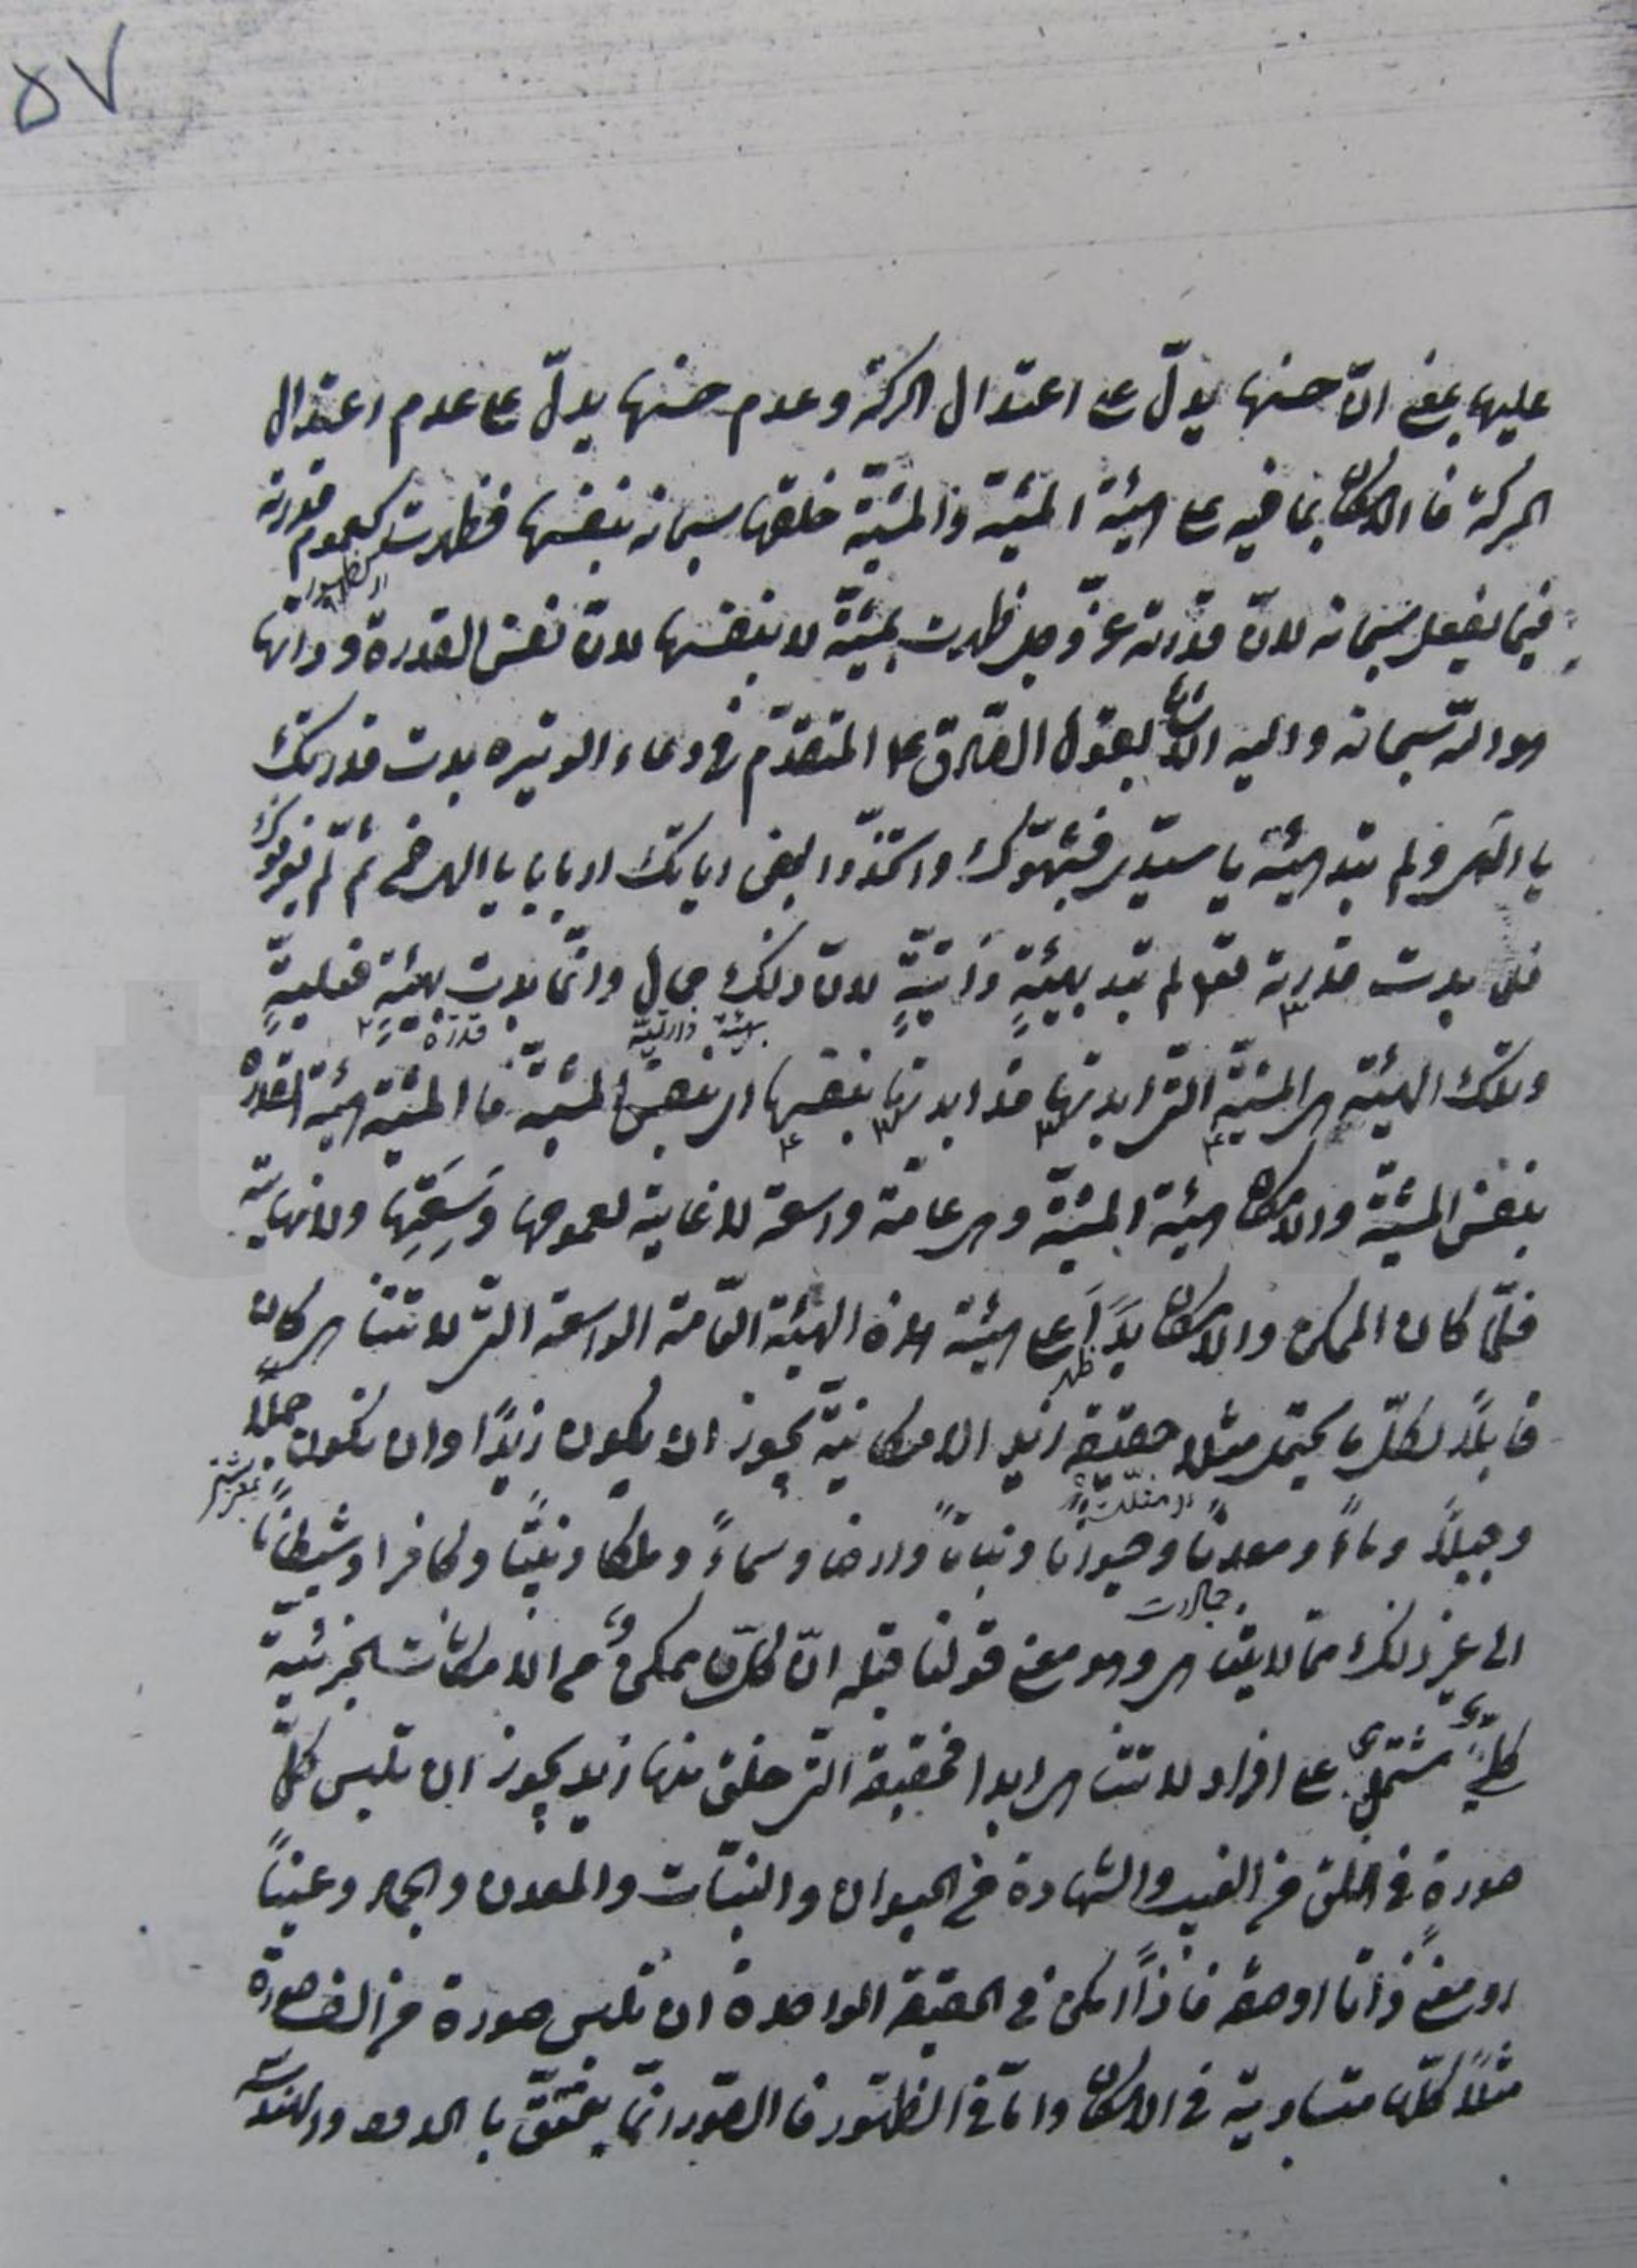 ٥٧
عليها يعني انّ حسنها يدلّ على اعتدال الحركة وعدم حسنها يدلّ على عدم اعتدال
الحركة فا الامكان بما فيه على هيئة المشيّة والمشيّة خلقها سبحانه بنفسها فظهرت كعموم قدرته
فيما يفعل سبحانه لانّ قدرته عزّ وجل ظهرت بمشيّة لا بنفسها لانّ نفس القدرة وذاتها
هو الله سبحانه واليه الاشارة بقول الصادق ع المتقدّم في دعاء الوتيره بدت قدرتك
يا الهي ولم تبد هيئة يا سيّدي فشبّهوك واتخذّوا بعض اياتك اربابا يا الهي فمن ثم لم يعرفوك
فلما بدت قدرته تعالى لم تبد بهيئةٍ ذاتيّةٍ لانّ ذلك محال وانّما بدت بهيئةٍ فعليةٍ
بهيئة ذاتيّة قدرة
وتلك الهيئة هي المشيّة التي ابدتها قد ابدتها بنفسها اي بنفس المشيّة فا المشيّة هيئة القدرة
بنفس المشيّة والامكان هيئة المشيّة وهي عامّة واسعة لا غاية لعمومها وسَعَتِها ولا نهاية
فلمّا كان الممكن والامكان بدَأ على هيئة هذه الهيئة العامّة الواسعة التي لا تتناهى كان
ظهر
قابلاً لكلّ ما يحتمل مثلا حقيقة زيد الامكانيّة يجوز ان يكون زيدًا وان تكون جملا
وجبلاً وماءً ومعدنًا وحيوانا ونباتاً وارضا وسماءً وملكا ونبيًّا وكافرا وشيطانًا
الى غير ذلك ممّا لا يتناهى وهو معنى قولنا قبله انّ كلّ ممكن من الامكانات الجزئيّة
كليّ مشتمل على افراد لا تتناهى ابدا فحقيقة التي خلق منها زيد يجوز ان تلبس كلّ
صورةٍ في الخلق من الغيب والشهادة من الحيوان والنبات والمعدن والجماد وعيناً
او معنى ذاتا او صفة فاذا امكن في الحقيقة الواحدة ان تلبس صورة من الف صورة
مثلاً كلّها متساوية في الامكان وامّا في الظهور فا الصّور انّما يتحقّق با الحدود والهندسة